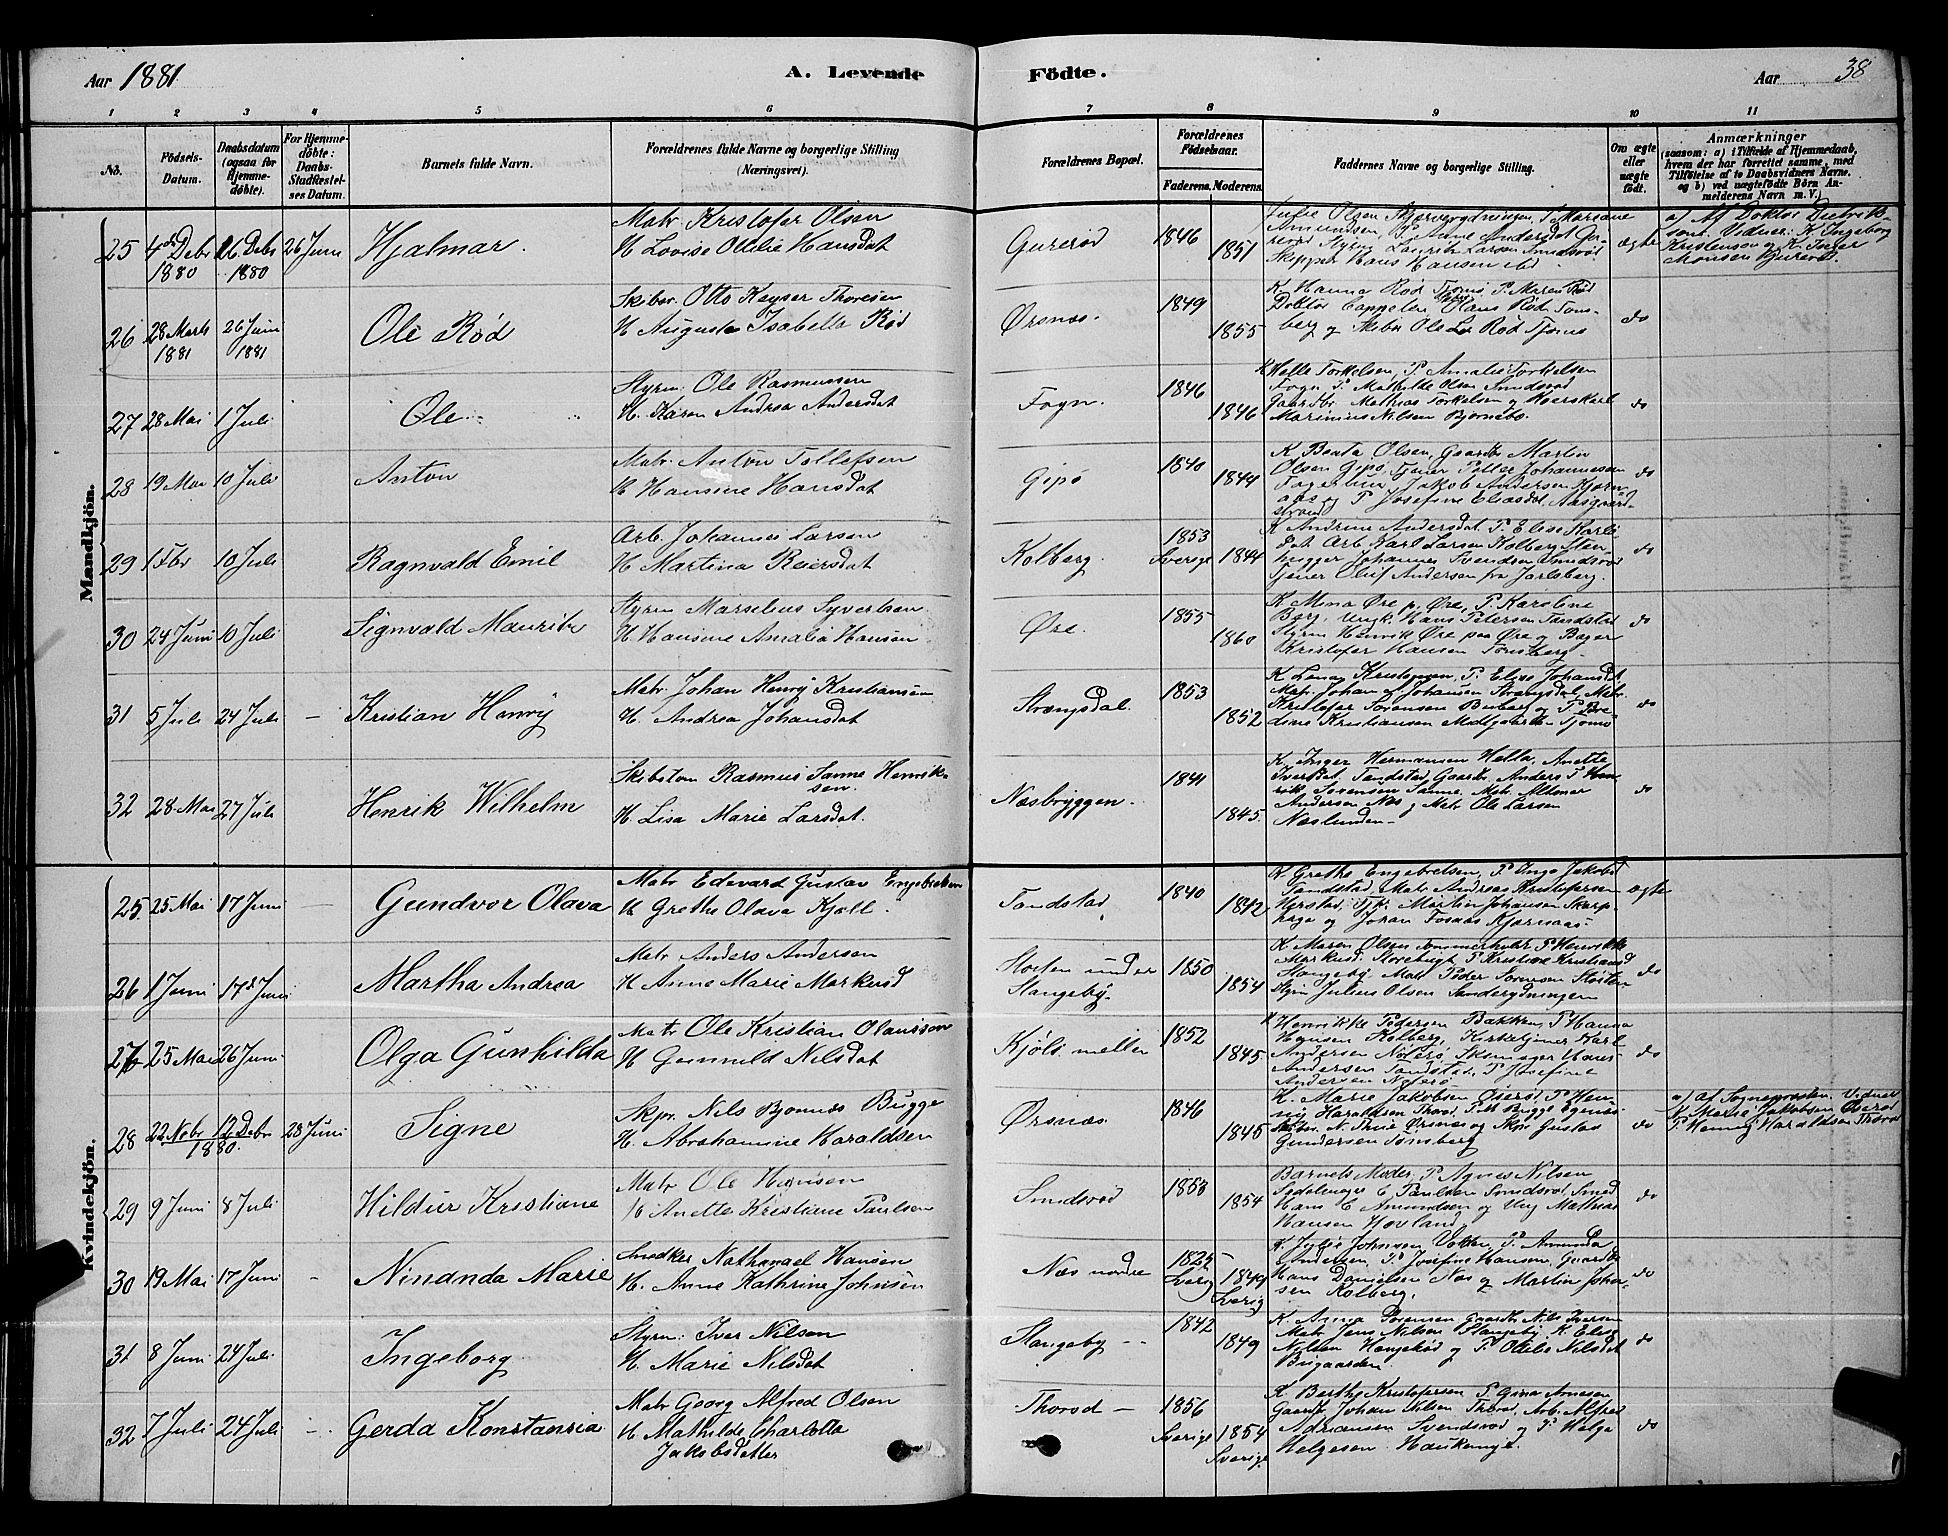 Aar 1881
A. Levende
Födte.
Aar
38
1 2 3 4 5 6 7 8 9 10 11
No.
Födsels-
Datum.
Daabsdatum
(ogsaa for
Hjemme-
döbte).
For Hjemme-
döbte:
Daabs-
Stadfæstel-
ses Datum.
Barnets fulde Navn.
Forældrenes fulde Navne og borgerlige Stilling
(Næringsvei).
Forældrenes Bopæl.
Forældrenes
Födselsaar.
Faderens. Moderens.
Faddernes Navne og borgerlige Stilling.
Om ægte
eller
uægte
födt.
Anmærkninger
(saasom: a) i Tilfælde af Hjemmedaab,
hvem der har forrettet samme, med
Tilföielse af to Daabsvidners Navne.
og b) ved uægtefödte Börn An-
melderens Navn m. V.)
Mandkjön.
25 4de Debr 1880 26 Debr 1880 26 Juni Hjalmar.
Matr Kristofer Olsen
H. Lovise Otilie Hansdat
Gurerød 1846 1851
Skipper Hans Hansen ibd.
ægte
a) Af Doktor
sen. Vidner: K. Ingeborg
Kristensen og K. Inger
Monsen Gurerød.
26 28 Marts 1881 26 Juni 1881 Ole Rød
Skibsr. Otto Keyser Thoresen
H Augusta Isabella Rød
Ørsnæs. 1849 1855
K. Hanna Rød Tjømø P. Maren Rød
Doktor Cappelen, Claus Rød Tøns-
berg og Skibsr Ole Rød Tjømø
do
27 28 Mai 1 Juli Ole
Styrm: Ole Rasmussen
H. Karen Andrea Andersdat
Fogn. 1846 1846
K Helle Torkelsen, P. Amalie Torkelsen
Fogn P. Mathilde Olsen Smidsrød
Gaardbr Mathias Torkelsen og
Marinius Nilsen Bjørnebo.
do
28 19 Mai 10 Juli Anton
Matr. Anton Tollefsen
H Hansine Hansdat
Gipø 1840 1844
K Beata Olsen, Gaardbr Martin
Olsen Gipø, Tjener Petter Johannesen
Fagerlun, Jakob Andersen Kjørn-
aas og P. Josefine Eliasdat, Aasgaard-
strand
do
29 1 Fbr 10 Juli Ragnvald Emil
Arb. Johannes Larsen
H Martina Reiersdat
Kolberg. 1853 Sverige 1844
K Andrine Andersdat P. Elise Karls
Dat. Arb Karl Larsen Kolberg Sten-
hugger Johannes Svendsen Smidsrød
Tjener Oluf Andersen fra Jarlsberg.
do
30 24 Juni 10 Juli Signvald Mauritz
Styrm Marselius Syvertsen
H Hansine Amalia Hansen
Øre. 1855 1860
K Mina Øre p. Øre, P. Karoline
Berg, Ungk. Hans Petersen Tandstad
Styrm Henrik Øre paa Øre og Bager
Kristofer Hansen Tønsberg.
do
31 5 Juli 24 Juli – Kristian Henrij
Matr Johan Henrij Kristiansen
H. Andrea Johansdat
Strængsdal. 1853 1852
K Lena Kristensen, P. Elise Johansdt
Matr. Johan A Johansen Strængsdal, Matr.
Kristofer Sørensen
dine Kristiansen Midtgaarden Tjømø
do
32 28 Mai 27 Juli Henrik Wilhelm
Skibstøm Rasmus Sanne Henrik-
sen.
H. Lisa Marie Larsdat.
Næsbryggen. 1841 1845.
K. Inger Hermansen Hella, Anette
Iversdat, Tandstad, Gaardbr. Anders P Hen-
rik Sørensen Sanne, Matr. Aldmer
Andersen Næs og Matr Ole Larsen
Næslunden
do
Kvindekjön.
25 25 Mai 17 Juni – Gundvor Olava
Matr Edevard Gustav Engebretsen
H Grethe Olava Kjøll.
Tandstad 1840 1842
K. Grethe Engebretsen, P. Inga Jakobsd
Tandstad, Matr Andreas Kristofersen
Johan Fosaas Kjørnaas
ægte
26 1 Juni 17 Juni Martha Andrea
Matr Anders Andersen
H Anne Marie Markusd
Støten under
Stangeby. 1850 1854
K. Maren Olsen Sommerholt P Henrikke
Markusd Storebugt P Kristine Kristiansd
Stangeby Matr Peder Sørensen Støten
Styrm Julius Olsen Sanderydningen
do
27 25 Mai 26 Juni. Olga Gunhilda
Matr Ole Kristian Olaussen
H Gunnild Nilsdat
Kjøls mellem 1852 1845.
K Henrikke Pedersen Bakken, P Hanna
Hansen Kolberg, Kirketjener Karl
Andersen Nøterø, Skomager Hans
Andersen Tandstad, P Josefine
Andersen Nøterø
do
28 22 Nobr 12 Debr 1880. 28 Juni Signe
Skpr. Nils Bjonnes Bugge
H. Abrahamine Haraldsen
Ørsnæs. 1846 1845
K. Marie Jakobsen Øserød P Hen-
nig Haraldsen Thorød, P. M Bugge
N. True Ørsnæs og Skpr Gustav
Gundersen Tønsberg
do
a) af Sognepresten. Vidner
K. Marie Jakobsen Øserød
P. Hennig Haraldsen Thorød
29 9 Juni 8 Juli Hildur Kristiane
Matr Ole Hansen
H Anette Kristiane Paulsen
Smidsrød 1853 1854
Barnets Moder P Agnes Nilsen
Sadelmager C Paulsen Smidsrød, Smed
Hans C Amundsen og Ung Mathias
Hansen Hovland
do
30 19 Mai 17 Juni – Ninanda Marie
Snedker Nathanael Hansen
H. Anne Kathrine Johnsen
Næs nordre 1825 Sverig 1840 Sverig
K. Julie Johnsen Volden, P. Amunda
Andersen, P. Josefine Hansen, Gaardbr
Hans Danielsen Næs og Martin Johan-
sen Kolberg.
do
31 8 Juni 24 Juli Ingeborg
Styrm: Iver Nilsen
H. Marie Nilsdat
Stangeby – 1842 1849
K. Anna Sørensen Gaardbr Nils Iversen
Matr Jens Nilsen Stangeby K. Elise
Nilsen Hougerød og P. Otilie Nilsdat
Bugaarden
do
32 7 Juli 24 Juli – Gerda Konstansia
Matr Georg Alfred Olsen
H Mathilde Charlotta
Jakobsdatter
Thorød – 1856 Sverige 1854 Sverige
K. Berthe Kristofersen P. Gina Arnesen
Gaardbr Johan Nilsen Thorød, Arb Alfred
Adriansen Svendsrød og P Helga
Helgesen Haukemyr.
do